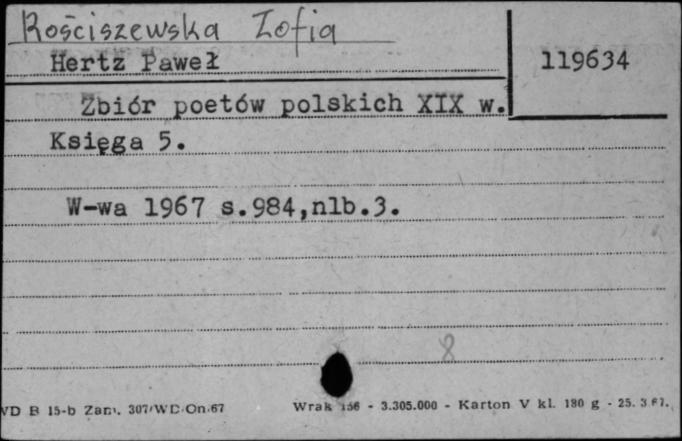 Rościszewska Zofia
Hertz Paweł
119634
Zbiór poetów polskich XIX w.
Księga 5.
W-wa 1967 s.984,nlb.3.
8
VD B 15-b Zam. 307/WD.On.67 Wrak 156 - 3.305.000 - Karton V kl. 180 g - 25. 3 67.